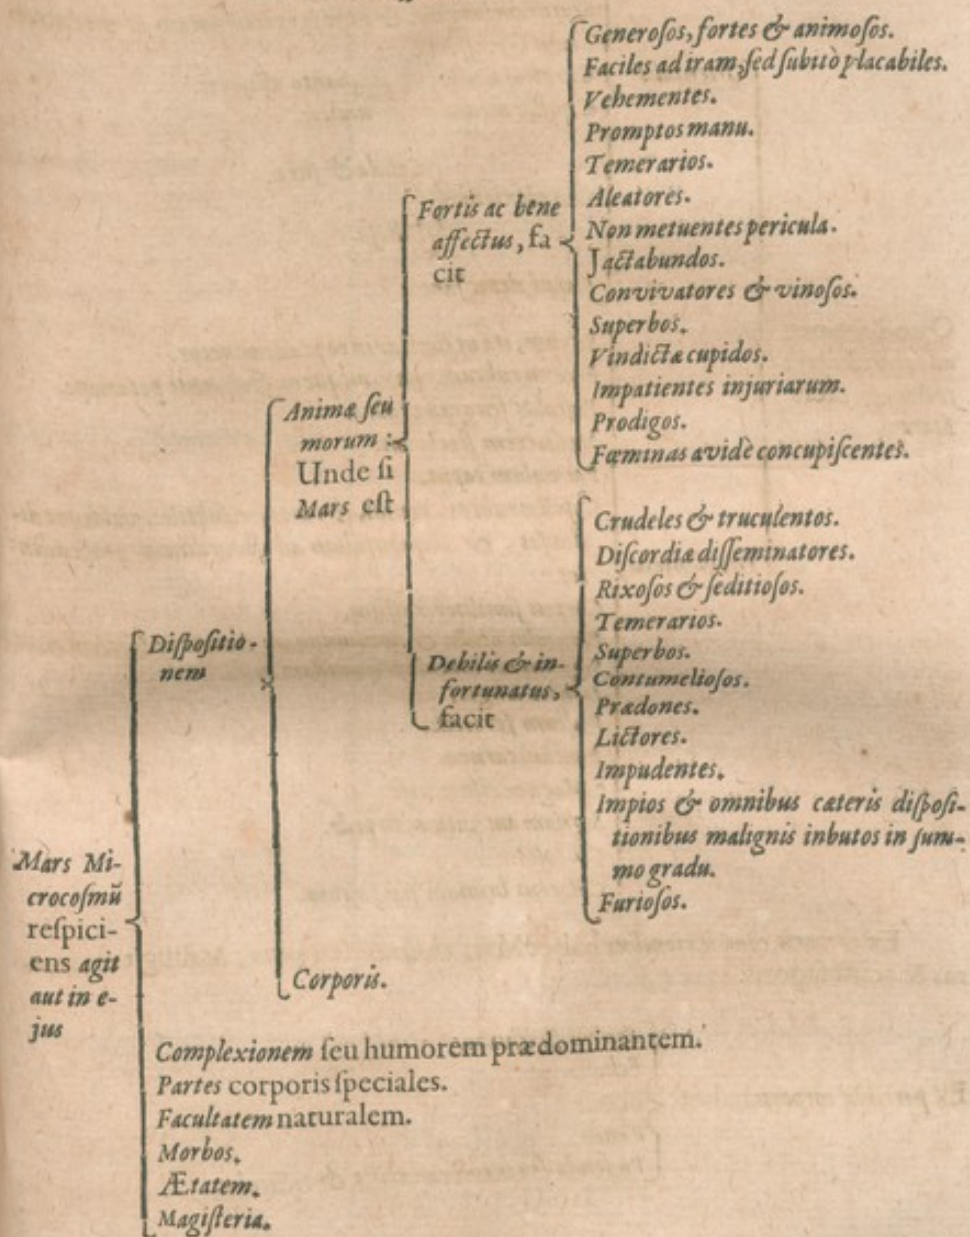 Mars Mi-
crocoſmũ
reſpici-
ens agit
aut in e-
jus
Diſpoſitio-
nem
Animæ ſeu
morum:
Unde ſi
Mars eſt
Fortis ac bene
affectus, fa
cit
Generoſos, fortes & animoſos.
Faciles ad iram, ſed ſubitò placabiles.
Vehementes.
Promptos manu.
Temerarios.
Aleatores.
Non metuentes pericula.
Jactabundos.
Convivatores & vinoſos.
Superbos.
Vindictæ cupidos.
Impatientes injuriarum.
Prodigos.
Fœminas avidè concupiſcentes.
Debilis & in-
fortunatus,
facit
Crudeles & truculentos.
Diſcordiæ diſſeminatores.
Rixoſos & ſeditioſos.
Temerarios.
Superbos.
Contumelioſos.
Prædones.
Lictores.
Impudentes.
Impios & omnibus cæteris diſpoſi-
tionibus malignis inbutos in ſum-
mo gradu.
Furioſos.
Corporis.
Complexionem ſeu humorem prædominantem.
Partes corporis ſpeciales.
Facultatem naturalem.
Morbos.
Ætatem.
Magiſteria.